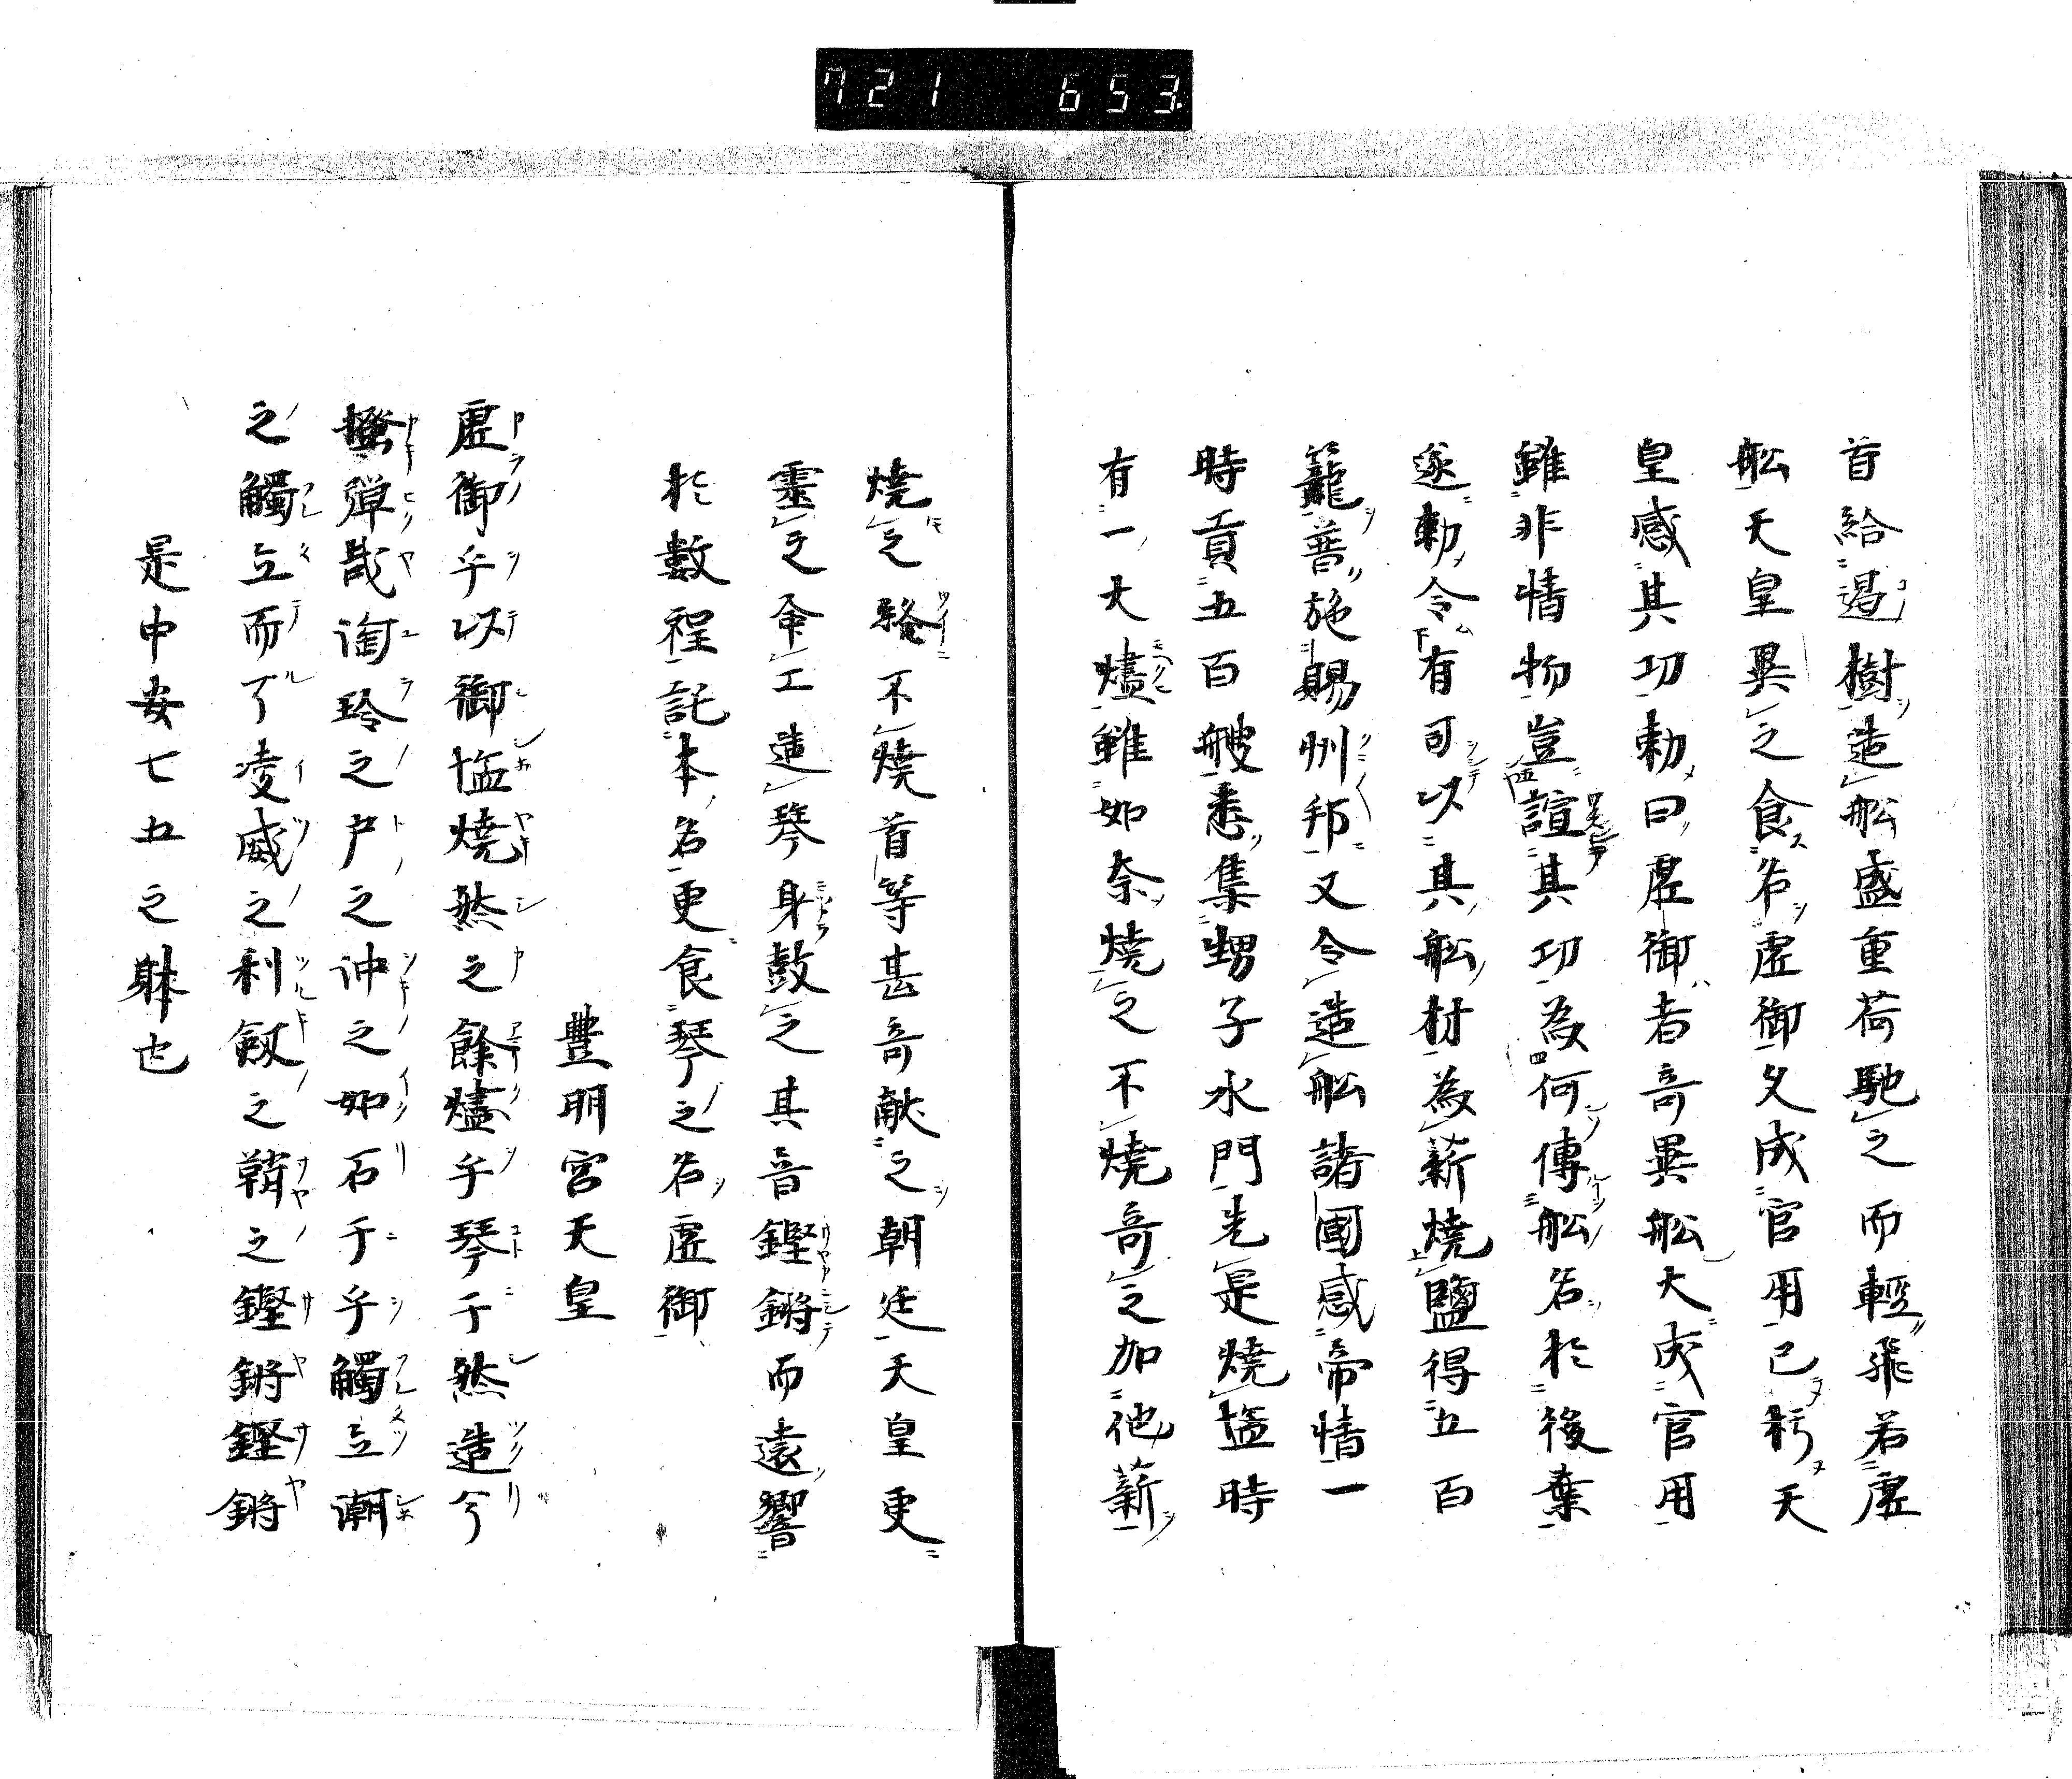 721 653
首給遏樹造舩盛重荷馳之而輕飛若虛
舩天皇異之食名虛御又成官用已朽天
皇感其功勅曰虛御者奇異舩大成官用
雖非情物豈諠其功為何傳舩名於後葉
遂勅令有可以其舩材為薪燒鹽得五百
籠普施賜州邦又令造舩諸國感帝情一
時貢五百艘悉集甥子水門先是燒塩時
有一大燼雖如奈燒之不燒奇之加他薪
燒之終不燒首等甚奇献之朝廷天皇更
靈之命工造琴身鼓之其音鏗鏘而遠響
於數程託本名更食琴之名虛御
豐明宮天皇
虛御乎以御塩燒然之餘燼乎琴于然造兮
搔彈哉淘玲之戸之沖之如石于乎觸立潮
之觸立而了凌威之利劔之鞘之鏗鏘鏗鏘
是中安七五之躰也